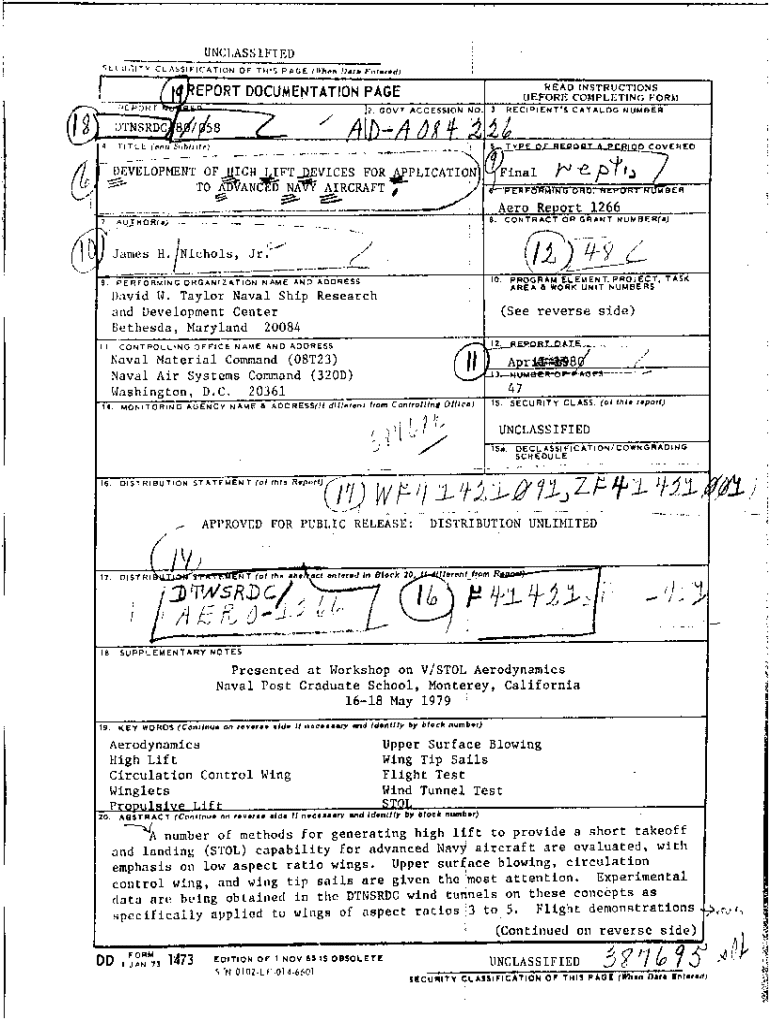 UNCLASSIFIED
SECURITY CLASSIFICATION OF THIS PAGE (When Data Entered)
19 REPORT DOCUMENTATION PAGE
READ INSTRUCTIONS
BEFORE COMPLETING FORM
REPORT NUMBER
2. GOVT ACCESSION NO.
3 RECIPIENT'S CATALOG NUMBER
18 DTNSRDC-80/058
AD-A084 226
4. TITLE (and Subtitle)
5. TYPE OF REPORT & PERIOD COVERED
6 DEVELOPMENT OF HIGH LIFT DEVICES FOR APPLICATION
TO ADVANCED NAVY AIRCRAFT
9 Final rept.,
6. PERFORMING ORG. REPORT NUMBER
Aero Report 1266
7. AUTHOR(s)
8. CONTRACT OR GRANT NUMBER(s)
10 James H. Nichols, Jr.
12 48
9. PERFORMING ORGANIZATION NAME AND ADDRESS
10. PROGRAM ELEMENT, PROJECT, TASK
AREA & WORK UNIT NUMBERS
David W. Taylor Naval Ship Research
and Development Center
Bethesda, Maryland 20084
(See reverse side)
11. CONTROLLING OFFICE NAME AND ADDRESS
12. REPORT DATE
Naval Material Command (08T23)
Naval Air Systems Command (320D)
Washington, D.C. 20361
11 April 1980
13. NUMBER OF PAGES
47
14. MONITORING AGENCY NAME & ADDRESS(if different from Controlling Office)
15. SECURITY CLASS. (of this report)
UNCLASSIFIED
15a. DECLASSIFICATION/DOWNGRADING
SCHEDULE
16. DISTRIBUTION STATEMENT (of this Report)
17 WF41421091, ZF41421001
APPROVED FOR PUBLIC RELEASE: DISTRIBUTION UNLIMITED
14
17. DISTRIBUTION STATEMENT (of the abstract entered in Block 20, if different from Report)
DTNSRDC/
AERO-1266
16 F41421
18. SUPPLEMENTARY NOTES
Presented at Workshop on V/STOL Aerodynamics
Naval Post Graduate School, Monterey, California
16-18 May 1979
19. KEY WORDS (Continue on reverse side if necessary and identify by block number)
Aerodynamics Upper Surface Blowing
High Lift Wing Tip Sails
Circulation Control Wing Flight Test
Winglets Wind Tunnel Test
Propulsive Lift STOL
20. ABSTRACT (Continue on reverse side if necessary and identify by block number)
A number of methods for generating high lift to provide a short takeoff
and landing (STOL) capability for advanced Navy aircraft are evaluated, with
emphasis on low aspect ratio wings. Upper surface blowing, circulation
control wing, and wing tip sails are given the most attention. Experimental
data are being obtained in the DTNSRDC wind tunnels on these concepts as
specifically applied to wings of aspect ratios 3 to 5. Flight demonstrations
(Continued on reverse side)
DD FORM 1 JAN 73 1473 EDITION OF 1 NOV 65 IS OBSOLETE
S/N 0102-LF-014-6601
UNCLASSIFIED 387695
SECURITY CLASSIFICATION OF THIS PAGE (When Data Entered)